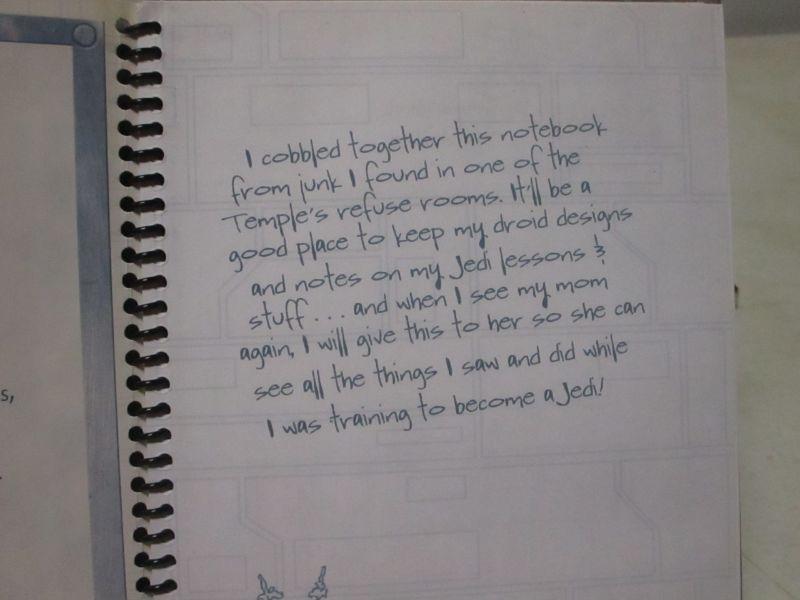 I cobbled together this notebook
from junk I found in one of the
Temple's refuse rooms. It'll be a
good place to keep my droid designs
and notes on my Jedi lessons &
stuff... and when I see my mom
again, I will give this to her so she can
see all the things I saw and did while
I was training to become a Jedi!
s,